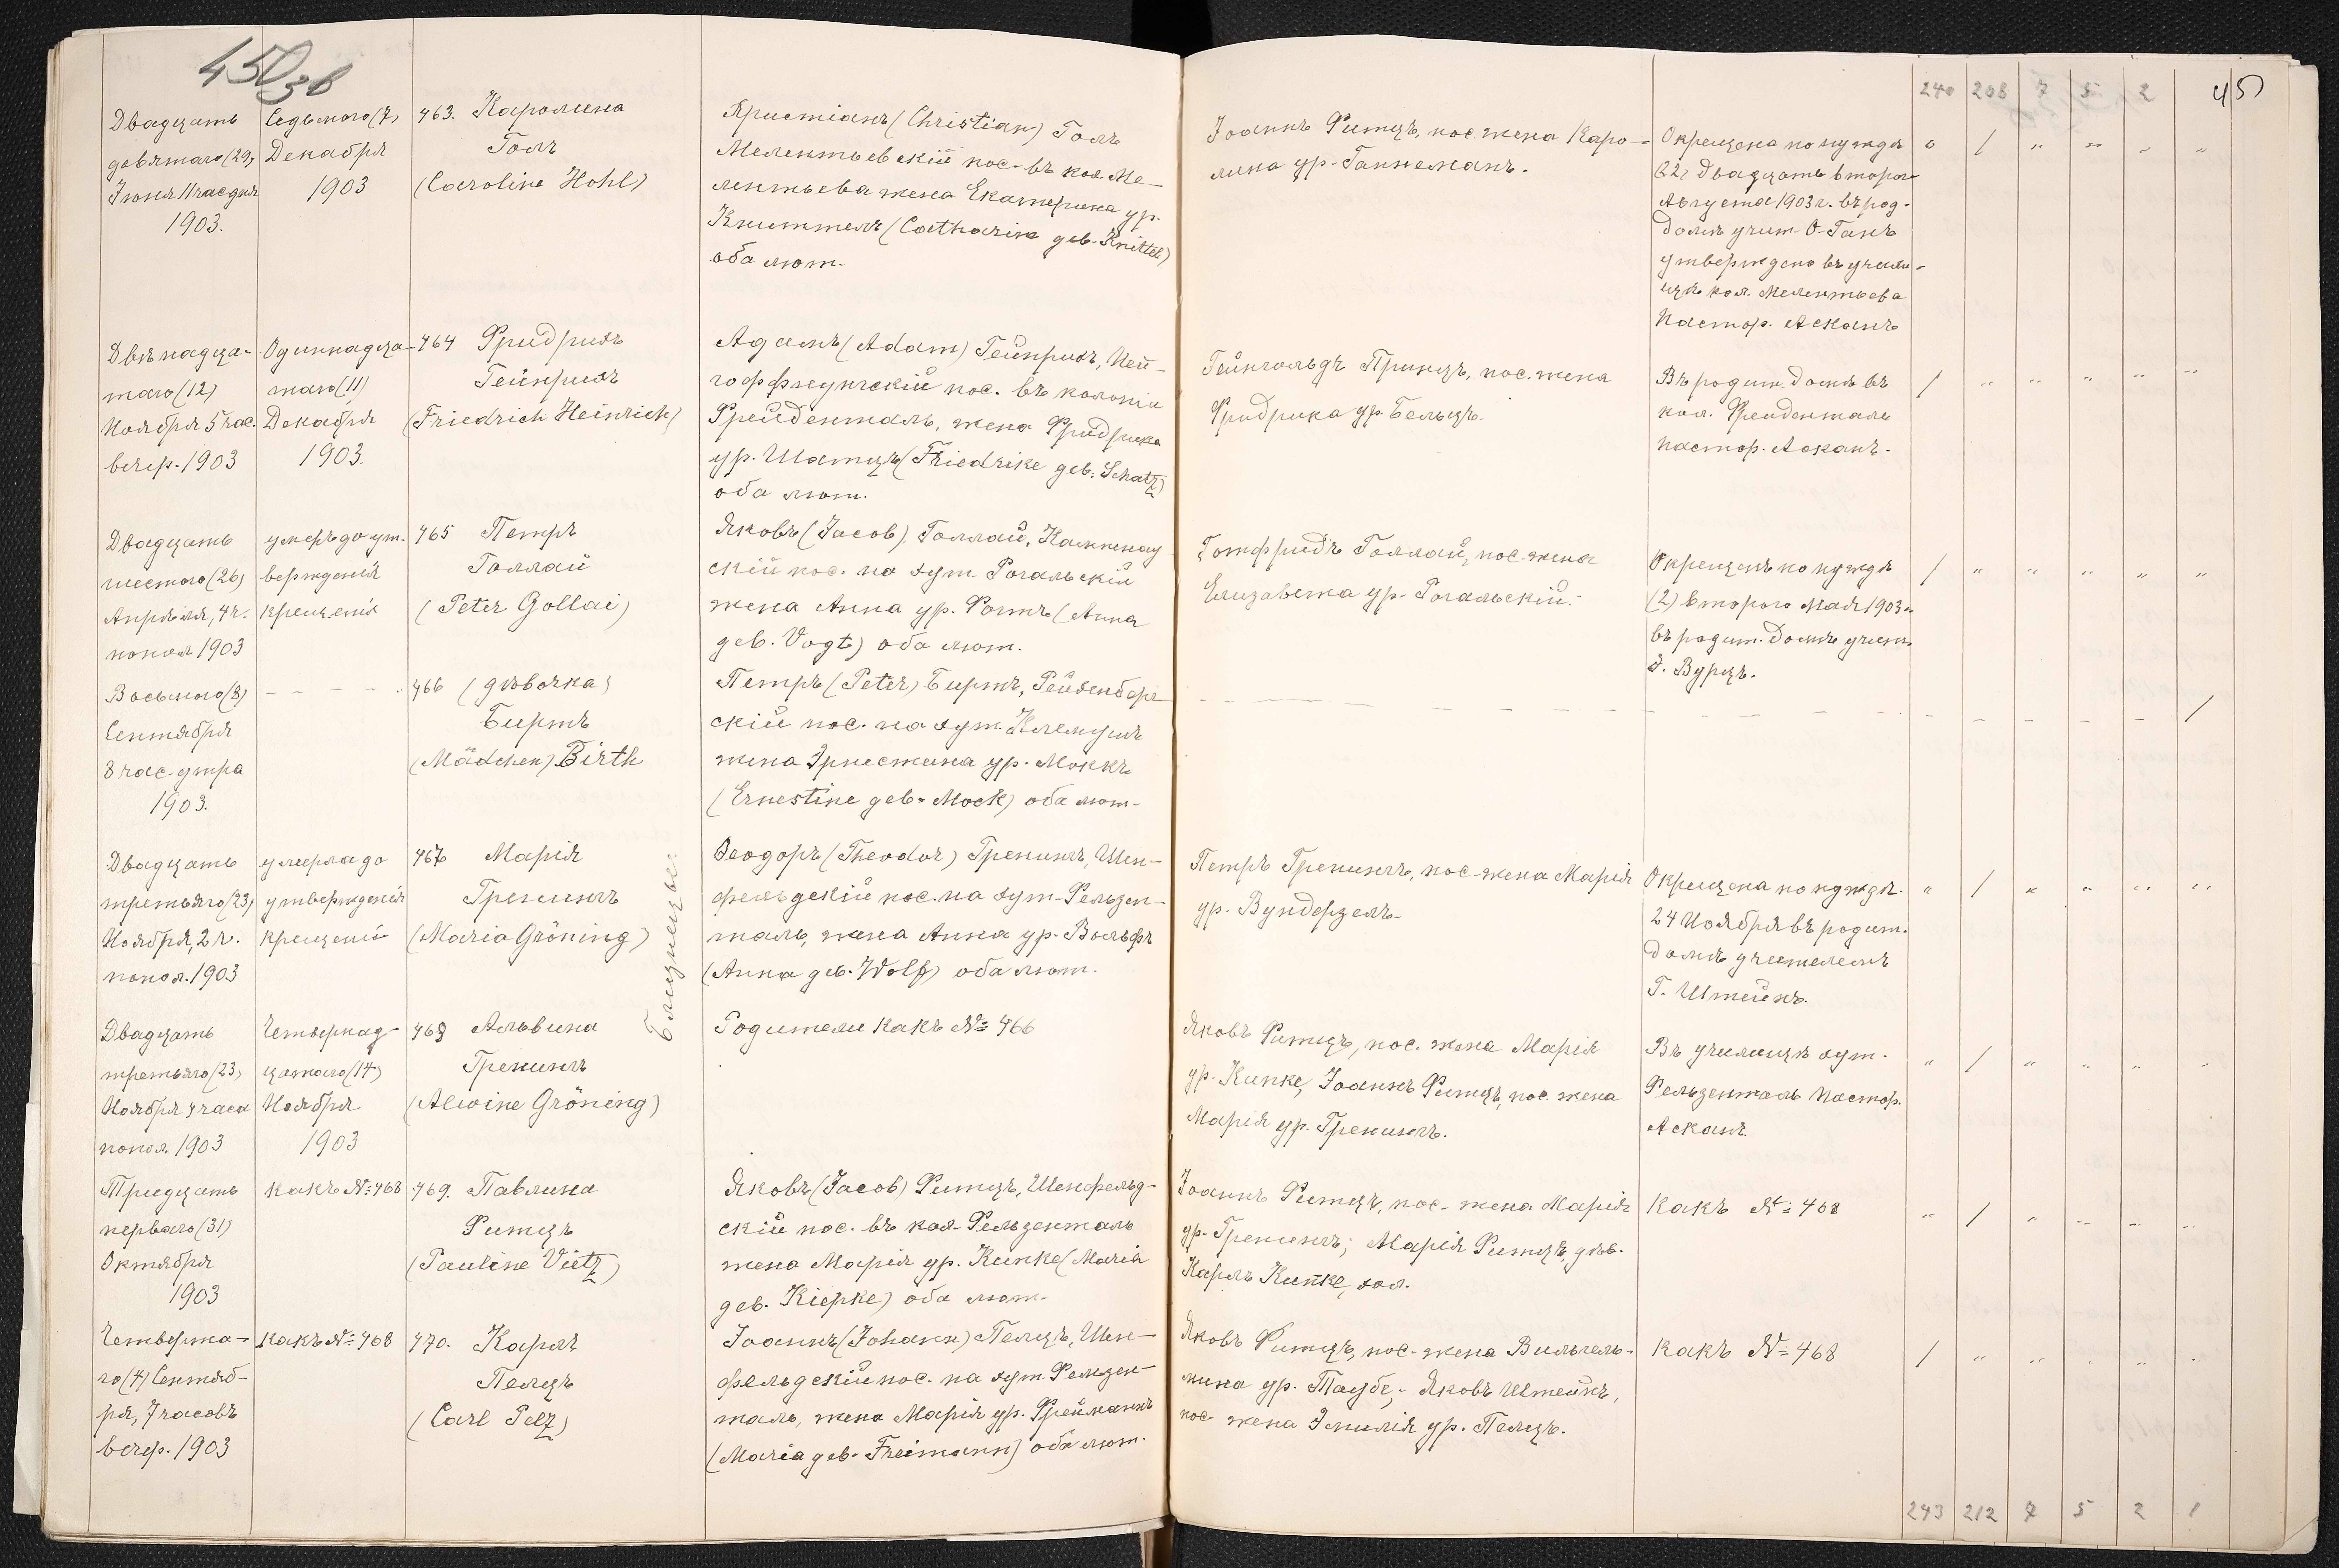 450 зв
240 208 7 5 2
451
Двадцать
девятаго (29)
Іюня 11 час дня
1903.
Седьмого (7)
Декабря
1903
463. Каролина
Голь
(Caroline Hohl)
Христіанъ (Christian) Голь
Мелентьевскій пос- въ кол Ме-
лентьева жена Екатерина ур.
Книттель (Catharin geb. Knittel)
оба лют.
Іоаннъ Фитцъ, пос. жена Каро-
лина ур. Ганнеманъ.
Окрещена по нуждѣ
(22) Двадцать второго
Августа 1903 г. въ род.
домѣ учит. О. Ганъ
утверждено въ учили-
щѣ кол. Мелентьева
Пастор. Асканъ
Двѣнадца-
таго (12)
Ноября 5 час.
вечер. 1903
Одиннадца-
таго (11)
Декабря
1903.
464 Фридрихъ
Гейнрихъ
(Friedrich Heinrich)
Адамъ (Adam) Гейнрихъ, Ней-
гоффнунгскій пос. въ колоніи
Фрейденталь, жена Фридрика
ур. Шатцъ (Friedrike geb. Schatz)
оба лют.
Гейнгольдъ Принцъ, пос. жена
Фридрика ур. Бельцъ.
Въ родит. домѣ въ
кол. Фрейденталь
пастор. Асканъ.
Двадцать
шестого (26)
Апрѣля, 4 ч.
пополн 1903
умеръ до ут-
вержденія
крещенія
465 Петръ
Голлай
(Peter Gollai)
Яковъ (Jacob) Голлай, Каннкау
скій пос. на хут Рогальскій
жена Анна ур. Фогтъ (Anna
geb. Vogt) оба лют.
Готфридъ Голлай, пос. жена
Елизавета ур. Рогальскій.
Окрещенъ по нуждѣ
(2) второго Мая 1903 г.
въ родит. домѣ учит.
Ф. Вурцъ.
Восьмого (8)
Сентября
8 час утра
1903.
466 (дѣвочка)
Биртъ
(Mädchen) Birth
Петръ (Peter) Биртъ, Рейхенберг
скій пос. на хут.
жена Эрнестина ур. Моккъ
(Ernestine geb. Mock) оба лют.
Двадцать
третьяго (23)
Ноября, 2 ч.
попол. 1903
умерла до
утвержденія
крещенія
467 Марія
Гренингъ
(Maria Gröning)
Близнецы:
Ѳеодоръ (Theodor) Гренингъ, Шен-
фельдскій пос. на хут. Фельзен-
таль, жена Анна ур. Вольфъ
(Anna geb. Wolf) оба лют.
Петръ Гренингъ, пос. жена Марія
ур. Вундерзель.
Окрещена по нуждѣ.
24 Ноября въ родит.
домѣ учителемъ
Г. Штейнъ.
Двадцать
третьяго (23)
Ноября 4 часа
попол 1903
Четырнад-
цатаго (14)
Ноября
1903
468 Альвина
Гренингъ
(Alwine Gröning)
Родители какъ № 466
Яковъ Фитцъ, пос. жена Марія
ур. Кипке, Іоаннъ Фитцъ, пос. жена
Марія ур. Гренингъ.
Въ училищѣ хут.
Фельзенталь пастор.
Асканъ.
Тридцать
перваго (31)
Октября
1903
какъ № 468
469. Павлина
Фитцъ
(Pauline Vietz)
Яковъ (Jacob) Фитцъ, Шенфельд-
скій пос. въ кол. Фельзенталь
жена Марія ур. Кипке (Maria
geb. Kiepke) оба лют.
Іоаннъ Фитцъ, пос. жена Марія
ур. Гренингъ; Марія Фитцъ, дѣв.
Карлъ Кипке, хол.
какъ № 468
Четверта-
го (4) Сентяб-
ря, 7 часовъ
вечер. 1903
какъ № 468
470. Карлъ
Пельцъ
(Carl Pelz)
Іоаннъ (Johann) Пельцъ, Шен-
фельдскій пос. на хут. Фельзен-
таль, жена Марія ур. Фрейманнъ
(Maria geb. Freimann) оба лют.
Яковъ Фитцъ, пос. жена Вильгель-
мина ур. Таубе, Яковъ Штейнъ,
пос. жена Эмилія ур. Пельцъ.
какъ № 468
243 212 7 5 2 1